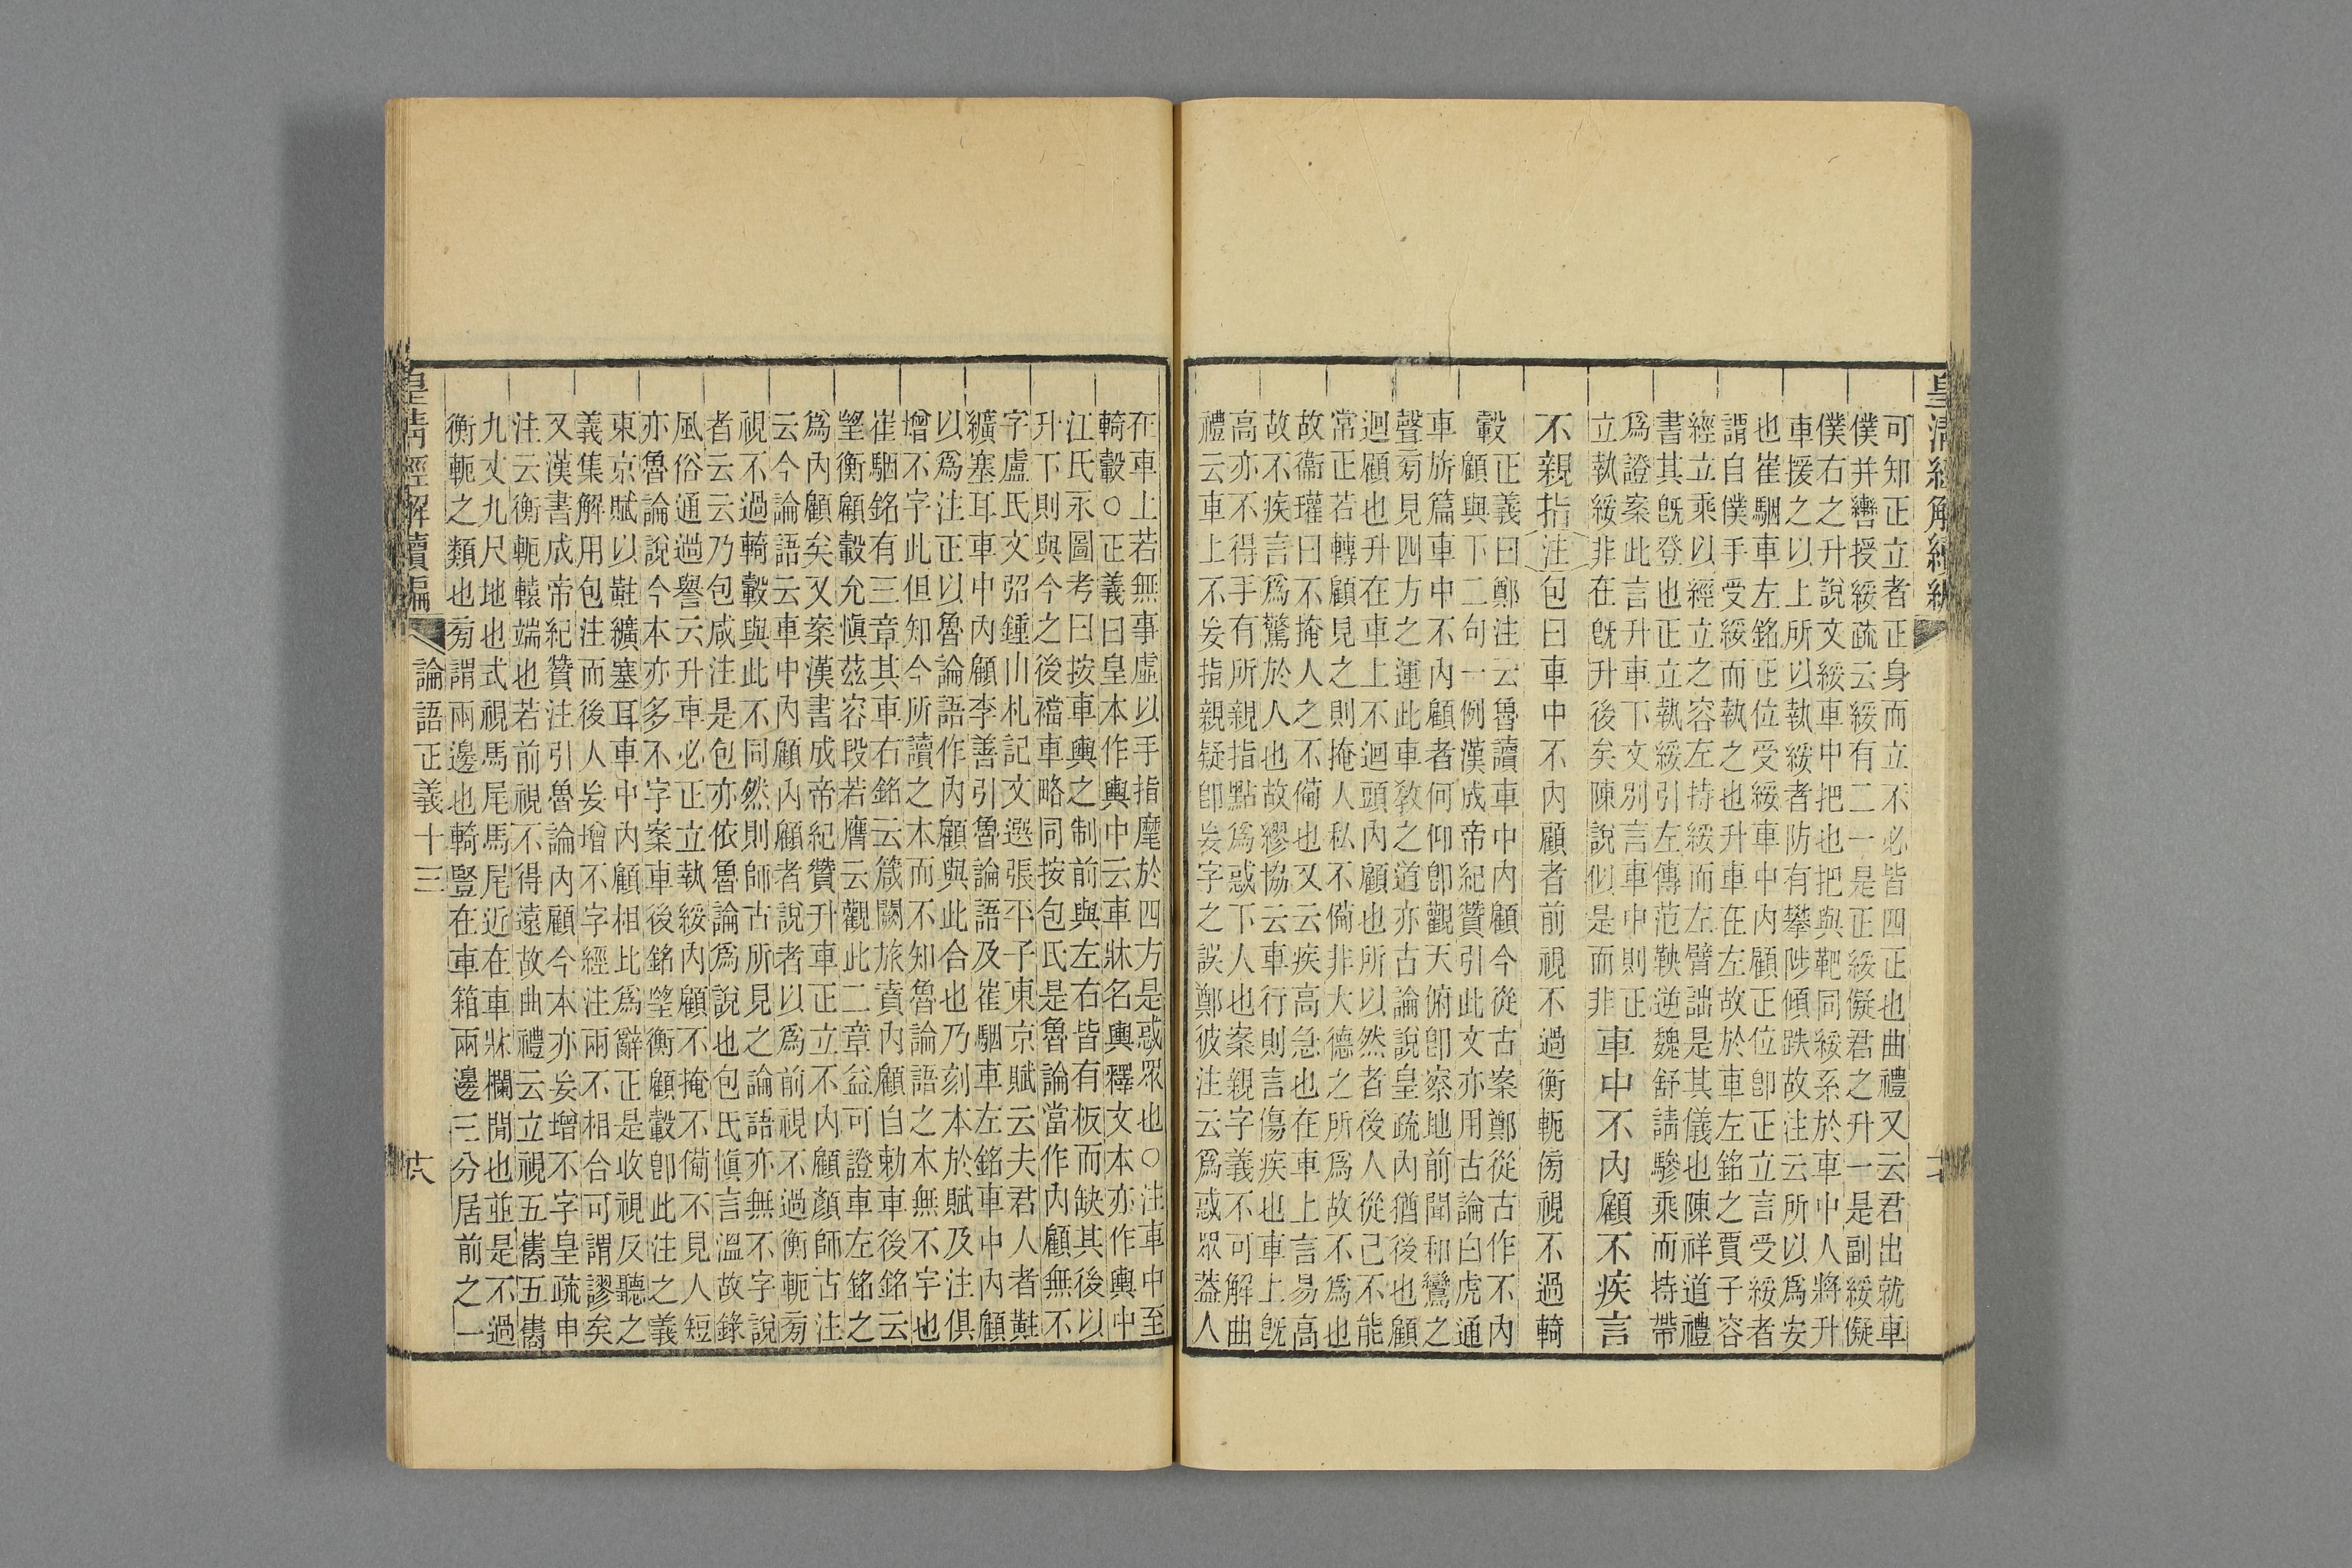 皇清經解續編
可知正立者正身而立不必皆四正也曲禮又云君出就車
僕并轡授綏疏云綏有二一是正綏儗君之升一是副綏儗
僕右之升說文綏車中把也把與靶同綏系於車中人將升
車援之以上所以執綏者防有攀陟傾跌故注云所以爲安
也崔駰車左銘正位受綏車中內顧正位卽正立言受綏者
謂自僕手受綏而執之也升車在左故於車左銘之賈子容
經立乘以經立之容左持綏而左臂詘是其儀也陳祥道禮
書其旣登也正立執綏引左傳范鞅逆魏舒請驂乘而持帶
爲證案此言升車下文別言車中則正
立執綏非在旣升後矣陳說似是而非
車中不內顧不疾言
不親指注包曰車中不內顧者前視不過衡軛傍視不過輢
轂
正義曰鄭注云魯讀車中內顧今從古案鄭從古作不內
顧與下二句一例漢成帝紀贊引此文亦用古論白虎通
車旂篇車中不內顧者何仰卽觀天俯卽察地前聞和鸞之
聲旁見四方之運此車敎之道亦古論說皇疏內猶後也顧
迴顧也升在車上不迴頭內顧也所以然者後人從己不能
常正若轉顧見之則掩人私不備非大德之所爲故不爲也
故衞瓘曰不掩人之不備也又云疾高急也在車上言易高
故不疾言爲驚於人也故繆協云車行則言傷疾也車上旣
高亦不得手有所親指點爲惑下人也案親字義不可解曲
禮云車上不妄指親疑卽妄字之誤鄭彼注云爲惑眾蓋人
在車上若無事虛以手指麾於四方是惑眾也○注車中至
輢轂○正義曰皇本作輿中云車牀名輿釋文本亦作輿中
江氏永圖考曰按車輿之制前與左右皆有板而缺其後以
升下則與今之後襠車略同按包氏是魯論當作內顧無不
字盧氏文弨鍾山札記文選張平子東京賦云夫君人者黈
纊塞耳車中內顧李善引魯論語及崔駰車左銘車中內顧
以爲注正以魯論語作內顧與此合也乃刻本於賦及注俱
增不字此但知今所讀之本而不知魯論語之本無不字也
崔駰銘有三章其車右銘云箴闕旅賁內顧自勅車後銘云
望衡顧轂允愼茲容段若膺云觀此二章益可證車左銘之
爲內顧矣又案漢書成帝紀贊升車正立不內顧顏師古注
云今論語云車中內顧內顧者說者以爲前視不過衡軛旁
視不過輢轂與此不同然則師古所見之論語亦無不字說
者云云乃包咸注是包亦依魯論爲說也包氏愼言溫故錄
風俗通過譽云升車必正立執綏內顧不掩不備不見人短
亦魯論說今本亦多不字案車後銘望衡顧轂卽此注之義
東京賦以黈纊塞耳車中內顧相比爲辭正是收視反聽之
義集解用包注而後人妄增不字經注兩不相合可謂謬矣
又漢書成帝紀贊注引魯論內顧今本亦妄增不字皇疏申
注云衡軛轅端也若前視不得遠故曲禮云立視五巂五巂
九丈九尺地也式視馬尾馬尾近在車牀欄閒也並是不過
衡軛之類也旁謂兩邊也輢豎在車箱兩邊三分居前之一
皇清經解續編
論語正義十三